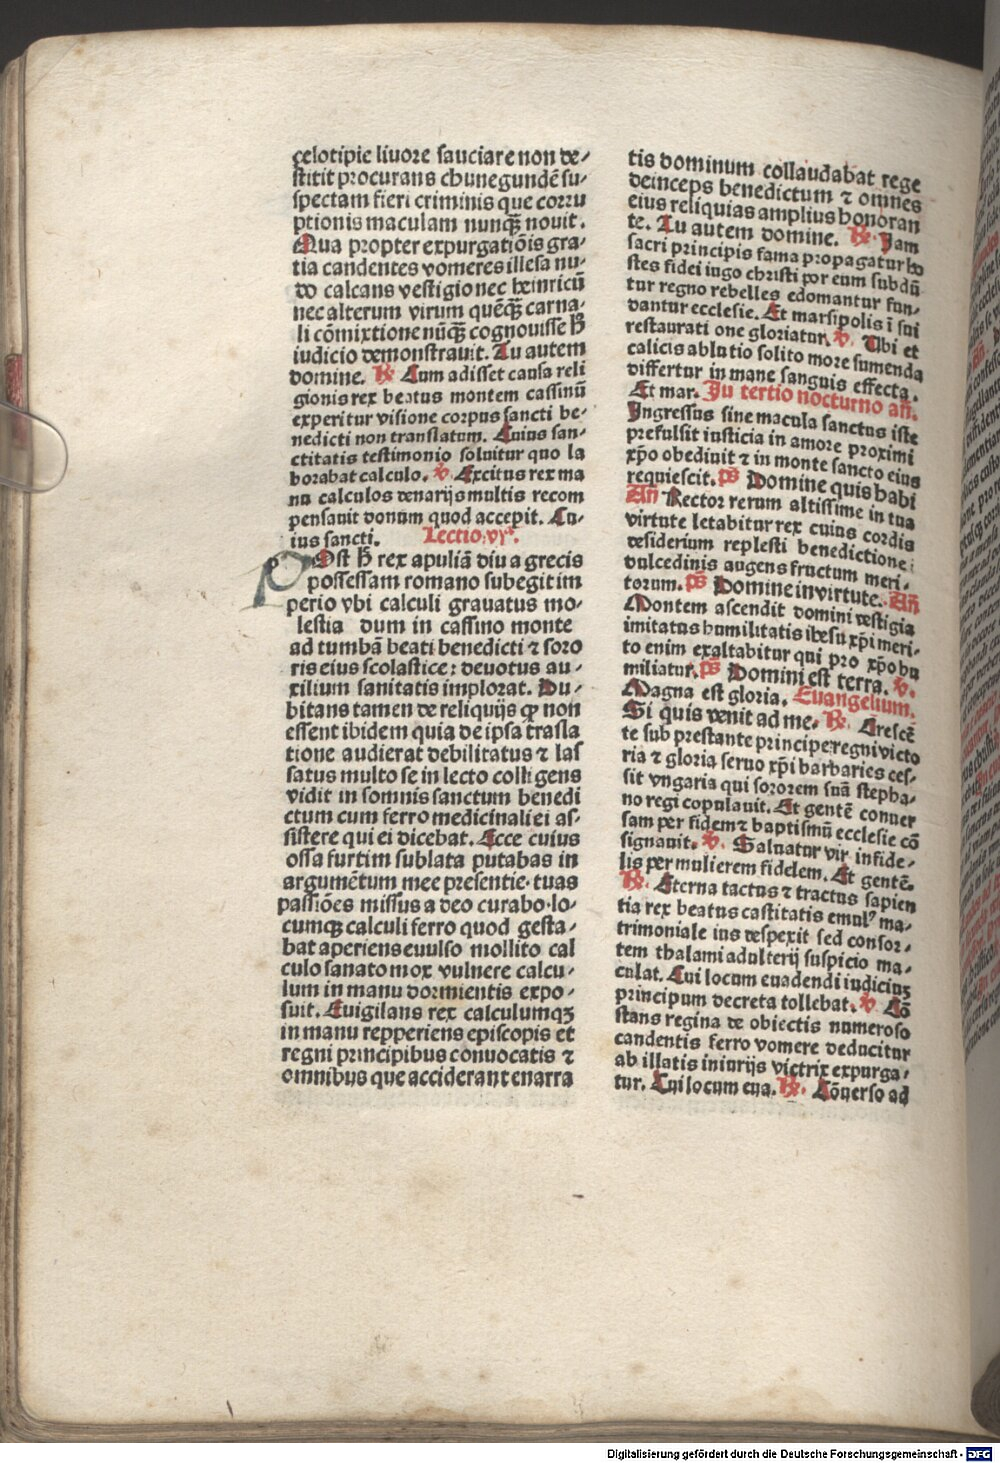 çelotipie liuore sauciare non de/
stitit procurans chunegundē su/
spectam fieri criminis que corru
ptionis maculam nunqꝫ nouit.
Qua propter expurgatiōis gra/
tia candentes vomeres illesa nu/
do calcans vestigio nec heinricū
nec alterum virum quēqꝫ carna/
li cōmixtione nūqꝫ cognouisse h̄
iudicio demonstrauit. Tu autem
domine. ℟. Cum adisset causa reli
gionis rex beatus montem cassinū
experitur visione corpus sancti be/
nedicti non translatum. Cuius san/
ctitatis testimonio soluitur quo la
borabat calculo. ℣. Excitus rex ma
nu calculos denarijs multis recom
pensauit donum quod accepit. Cu/
ius sancti. Lectio.vj.
POst h̄ rex apuliā diu a grecis
possessam romano subegit im
perio vbi calculi grauatus mo/
lestia dum in cassino monte
ad tumbā beati benedicti ⁊ soro
ris eius scolastice: deuotus au/
xilium sanitatis implorat. Du/
bitans tamen de reliquijs ꝙ non
essent ibidem quia de ipsa trasla
tione audierat debilitatus ⁊ las
satus multo se in lecto colligens
vidit in somnis sanctum benedi
ctum cum ferro medicinali ei as/
sistere qui ei dicebat. Ecce cuius
ossa furtim sublata putabas in
argumētum mee presentie· tuas
passiōes missus a deo curabo·lo/
cumqꝫ calculi ferro quod gesta/
bat aperiens euulso mollito cal
culo sanato mox vulnere calcu/
lum in manu dormientis expo/
suit. Euigilans rex calculumqꝫ
in manu repperiens episcopis et
regni principibus conuocatis ⁊
omnibus que acciderant enarra
tis dominum collaudabat rege
deinceps benedictum ⁊ omnes
eius reliquias amplius honoran
te. Tu autem domine. ℟. Jam
sacri principis fama propagatur ho
stes fidei iugo christi por eum subdū
tur regno rebelles edomantur fun/
dantur ecclesie. Et marsipolis ī sui
restaurati one gloriatur. ℣. Ubi et
calicis ablutio solito more sumenda
differtur in mane sanguis effecta.
Et mar. Ju tertio nocturno añ.
Ingressus sine macula sanctus iste
prefulsit iusticia in amore proximi
xp̄o obediuit ⁊ in monte sancto eius
requiescit. ps̄ Domine quis habi
Añ Rector rerum altissime in tua
virtute letabitur rex cuius cordis
desiderium replesti benedictione:
dulcedinis augens fructum meri/
torum. ps̄ Domine in virtute. Añ
Montem ascendit domini vestigia
imitatus humilitatis ihesu xp̄i meri/
to enim exaltabitur qui pro xp̄o hu
miliatur. ps̄ Domini est terra. ℣.
Magna est gloria. Euangelium.
Si quis venit ad me. ℟. Crescē
te sub prestante principe:regni victo
ria ⁊ gloria seruo xp̄i barbaries ces/
sit vngaria qui sororem suā stepha/
no regi copulauit. Et gentē conuer
sam per fidem ⁊ baptismū ecclesie cō
signauit. ℣. Saluatur vir infide/
lis per mulierem fidelem. Et gentē.
℟. Eterna tactus ⁊ tractus sapien
tia rex beatus castitatis emulꝰ ma/
trimoniale ius despexit sed consor/
tem thalami adulterij suspicio ma/
culat. Cui locum euadendi iudiciuꝫ
principum decreta tollebat. ℣. Cō
stans regina de obiectis numeroso
candentis ferro vomere deducitur
ab illatis iniurijs victrix expurga/
tur. Cui locum eua. ℟. Cōuerso ad
Digitalisierung gefördert durch die Deutsche Forschungsgemeinschaft - DFG